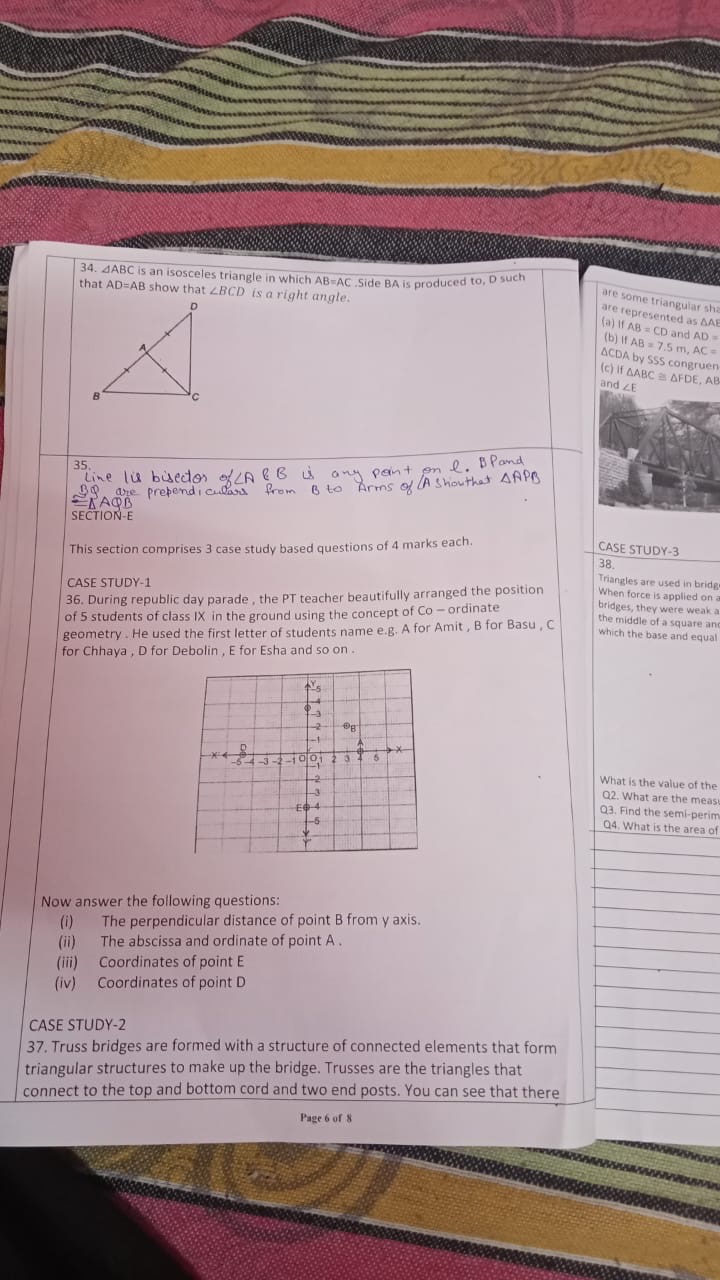 34. ⊿ABC is an isosceles triangle in which AB=AC .Side BA is produced to, D such
that AD=AB show that ∠BCD is a right angle.
D
A
B
C
35.
Line l is bisector of ∠A & B is any point on l. BP and
BQ are prependiculars from B to Arms of ∠A Show that ΔAPB
≅ΔAQB
SECTION-E
This section comprises 3 case study based questions of 4 marks each.
CASE STUDY-1
36. During republic day parade , the PT teacher beautifully arranged the position
of 5 students of class IX in the ground using the concept of Co – ordinate
geometry . He used the first letter of students name e.g. A for Amit , B for Basu , C
for Chhaya , D for Debolin , E for Esha and so on .
Y
5
4
3
2
B
1
D
A
X' -5 -4 -3 -2 -1 0 1 2 3 4 5 X
2
3
E 4
5
Y'
Now answer the following questions:
(i) The perpendicular distance of point B from y axis.
(ii) The abscissa and ordinate of point A .
(iii) Coordinates of point E
(iv) Coordinates of point D
CASE STUDY-2
37. Truss bridges are formed with a structure of connected elements that form
triangular structures to make up the bridge. Trusses are the triangles that
connect to the top and bottom cord and two end posts. You can see that there
Page 6 of 8
are some triangular
are represented as
(a) If AB = CD and AD =
(b) If AB = 7.5 m, AC =
ΔCDA by SSS
(c) If ΔABC ≅ ΔFDE, AB
and ∠E
CASE STUDY-3
38.
Triangles are used in
When force is applied on
bridges, they were weak
the middle of a square
which the base and equal
What is the value of the
Q2. What are the
Q3. Find the
Q4. What is the area of